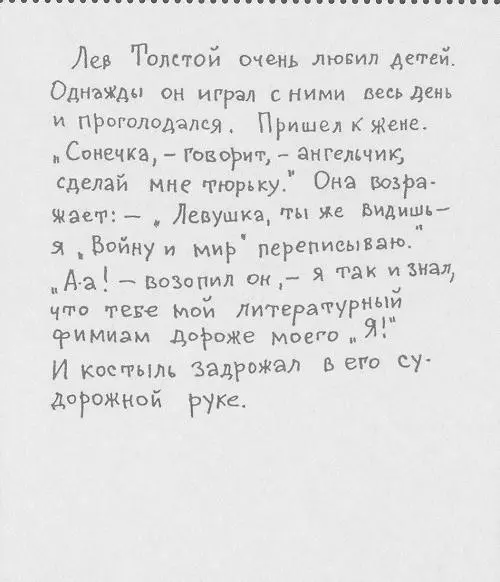 Лев Толстой очень любил детей.
Однажды он играл с ними весь день
и проголодался. Пришел к жене.
„Сонечка, – говорит, – ангельчик,
сделай мне тюрьку.“ Она возра-
жает: – „Левушка, ты же видишь –
я „Войну и мир“ переписываю.“
„А-а! – возопил он, – я так и знал,
что тебе мой литературный
фимиам дороже моего „Я!“
И костыль задрожал в его су-
дорожной руке.